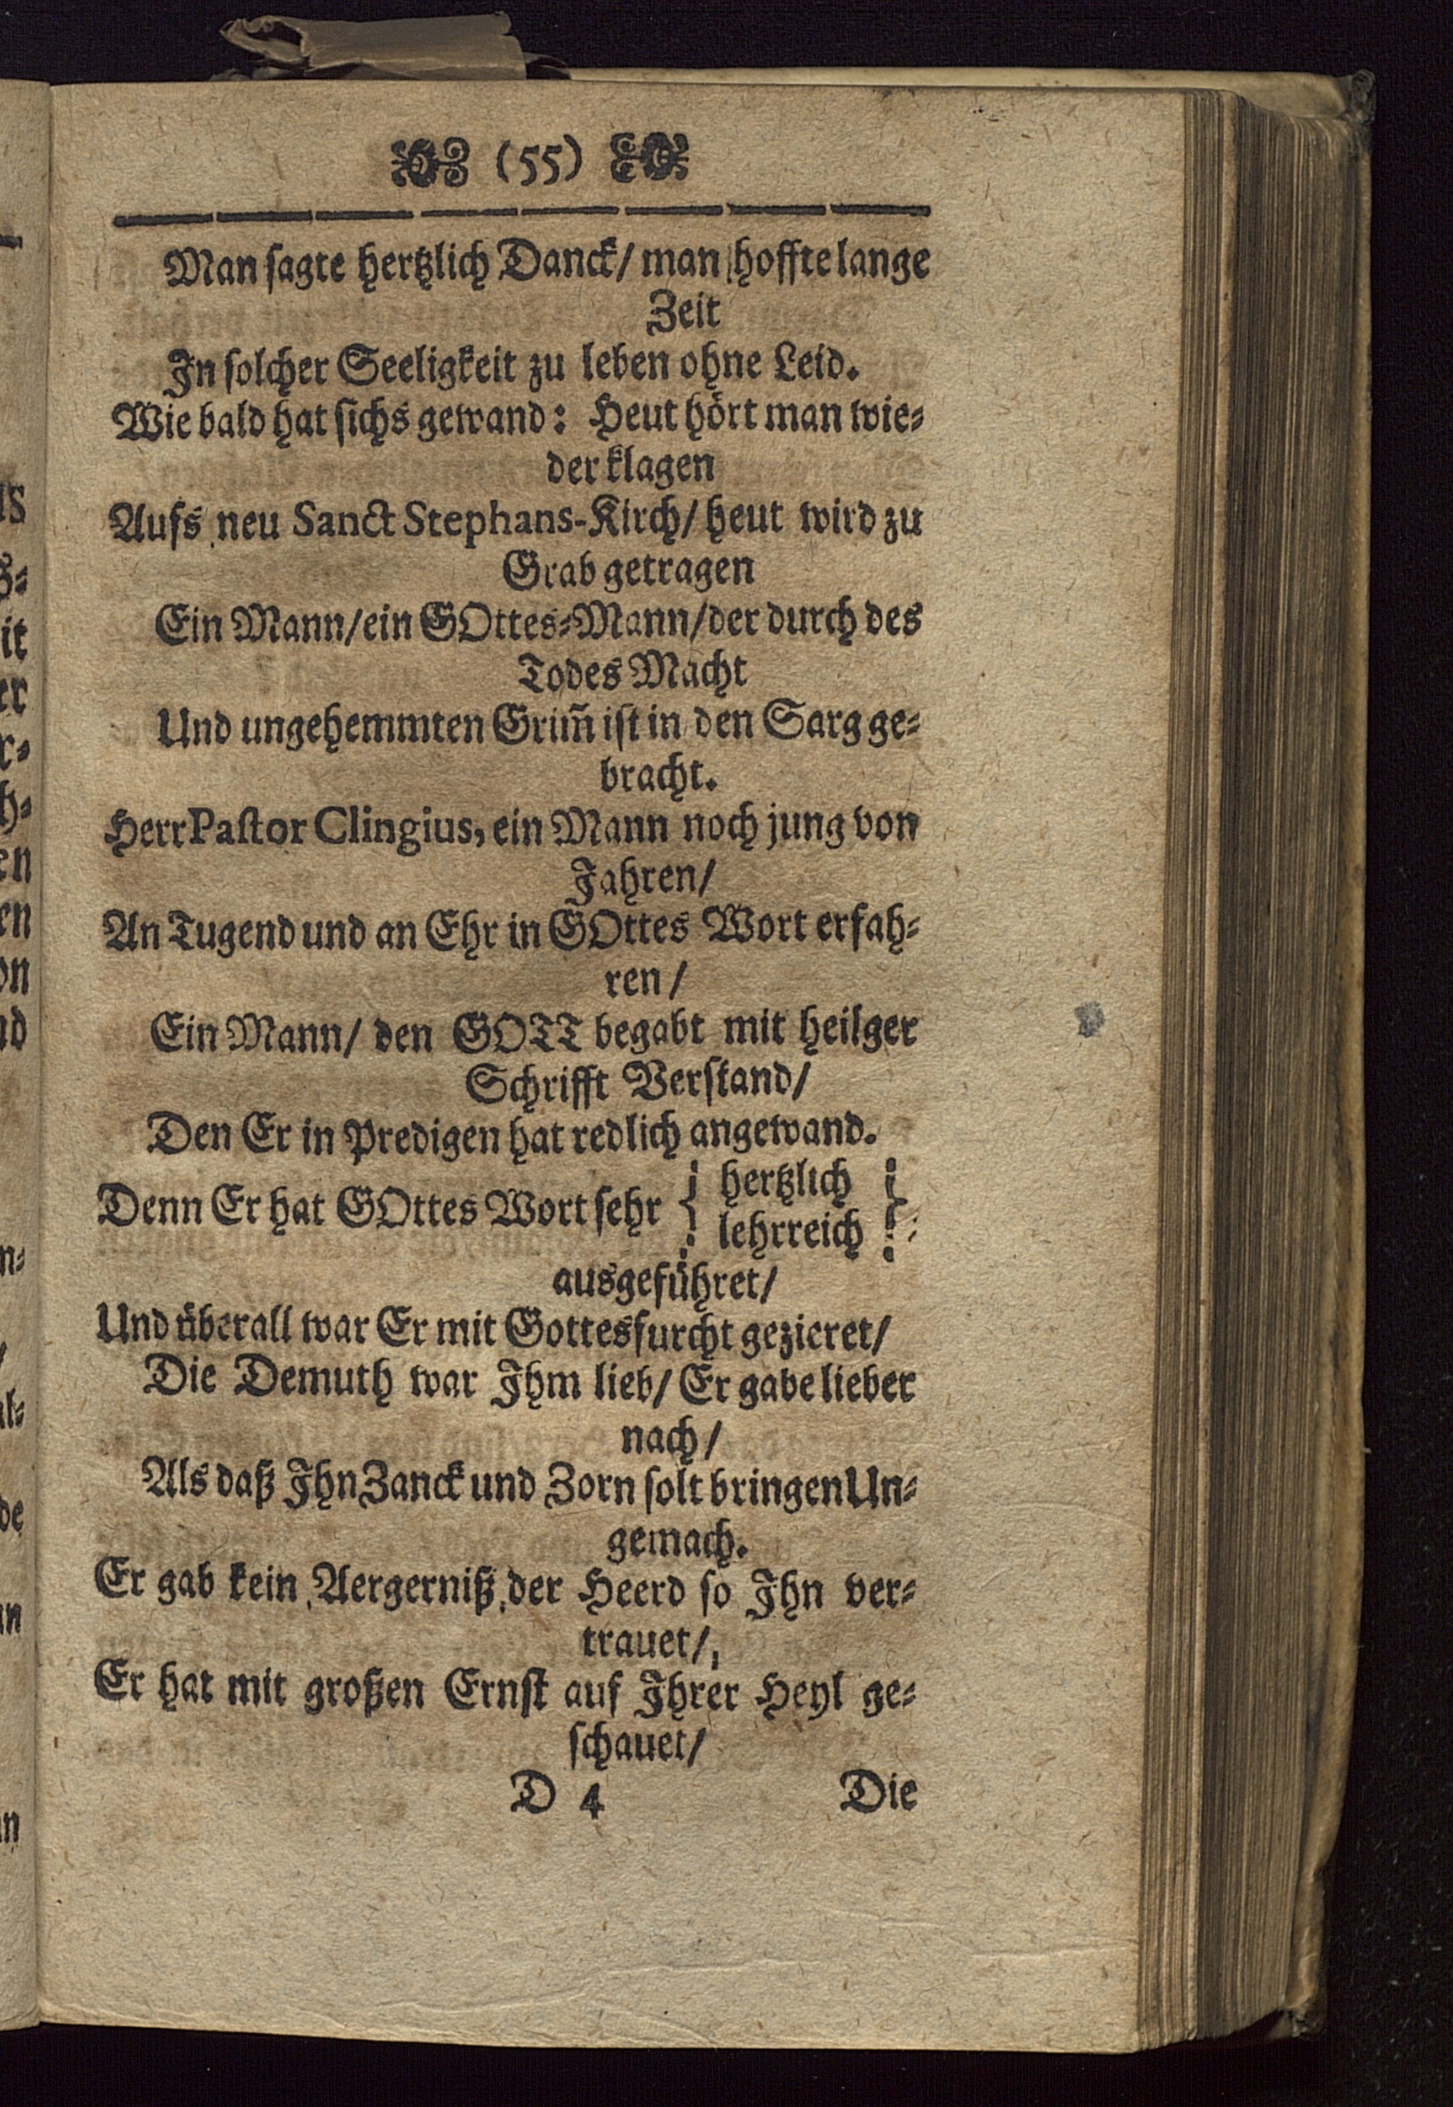 (55)
Man sagte hertzlich Danck/ man hoffte lange
Zeit
In solcher Seeligkeit zu leben ohne Leid.
Wie bald hat sichs gewand: Heut hört man wie-
der klagen
Aufs neu Sanct Stephans-Kirch/ heut wird zu
Grab getragen
Ein Mann/ein GOttes-Mann/der durch des
Todes Macht
Und ungehemmten Grim̃ ist in den Sarg ge-
bracht.
Herr Pastor Clingius, ein Mann noch jung von
Jahren/
An Tugend und an Ehr in GOttes Wort erfah-
ren/
Ein Mann/ den GOTT begabt mit heilger
Schrifft Verstand/
Den Er in Predigen hat redlich angewand.
Denn Er hat GOttes Wort sehr { hertzlich }
lehrreich
ausgeführet/
Und überall war Er mit Gottesfurcht gezieret/
Die Demuth war Ihm lieb/ Er gabe lieber
nach/
Als daß Ihn Zanck und Zorn solt bringen Un-
gemach.
Er gab kein Aergerniß der Heerd so Ihn ver-
trauet/
Er hat mit großen Ernst auf Ihrer Heyl ge-
schauet/
D 4 Die